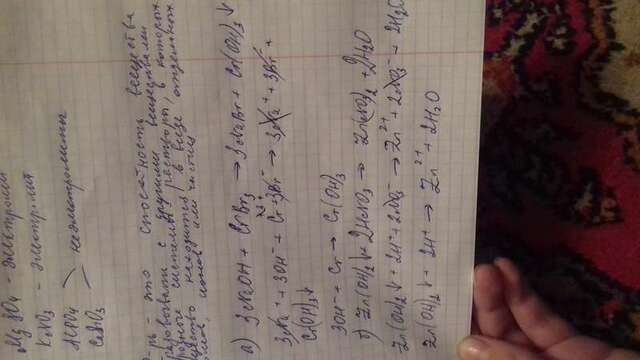 MgSO₄ - электролит
KNO₃ - электролит
AlPO₄
CaSiO₃ неэлектролиты
р-рь - это способность вещества
образовывать с другими веществами
родные системы растворы, в которых
вещество находится в виде отдельных
атомов, ионов или частиц
а) 3NaOH + CrBr₃ → 3NaBr + Cr(OH)₃↓
3Na⁺ + 3OH⁻ + Cr³⁺ + 3Br⁻ → 3Na⁺ + 3Br⁻ +
Cr(OH)₃↓
3OH⁻ + Cr → Cr(OH)₃
б) Zn(OH)₂↓ + 2HNO₃ → Zn(NO₃)₂ + 2H₂O
Zn(OH)₂↓ + 2H⁺ + 2NO₃⁻ → Zn²⁺ + 2NO₃⁻ + 2H₂O
Zn(OH)₂↓ + 2H⁺ → Zn²⁺ + 2H₂O